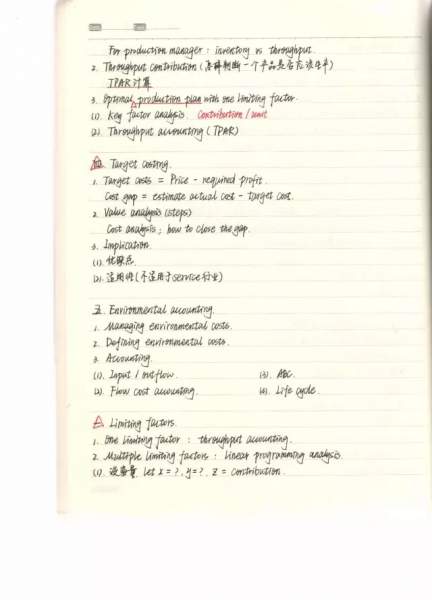 For production manager : inventory vs throughput.
2. Throughput contribution (怎样判断一个产品是否应该生产)
TPAR计算
3. Optimal production plan with one limiting factor.
(1). Key factor analysis. Contribution / unit
(2). Throughput accounting (TPAR)
四. Target costing.
1. Target costs = Price - required profit.
Cost gap = estimate actual cost - target cost.
2. Value analysis (steps)
Cost analysis; how to close the gap.
3. Implication.
(1). 优缺点.
(2). 适用性(不适用于service行业)
五. Environmental accounting.
1. Managing environmental costs.
2. Defining environmental costs.
3. Accounting.
(1). Input / outflow. (3). ABC.
(2). Flow cost accounting. (4). Life cycle.
Limiting factors.
1. One limiting factor : throughput accounting.
2. Multiple limiting factors : linear programming analysis.
(1). 设变量. Let x = ?, y = ?. z = contribution.